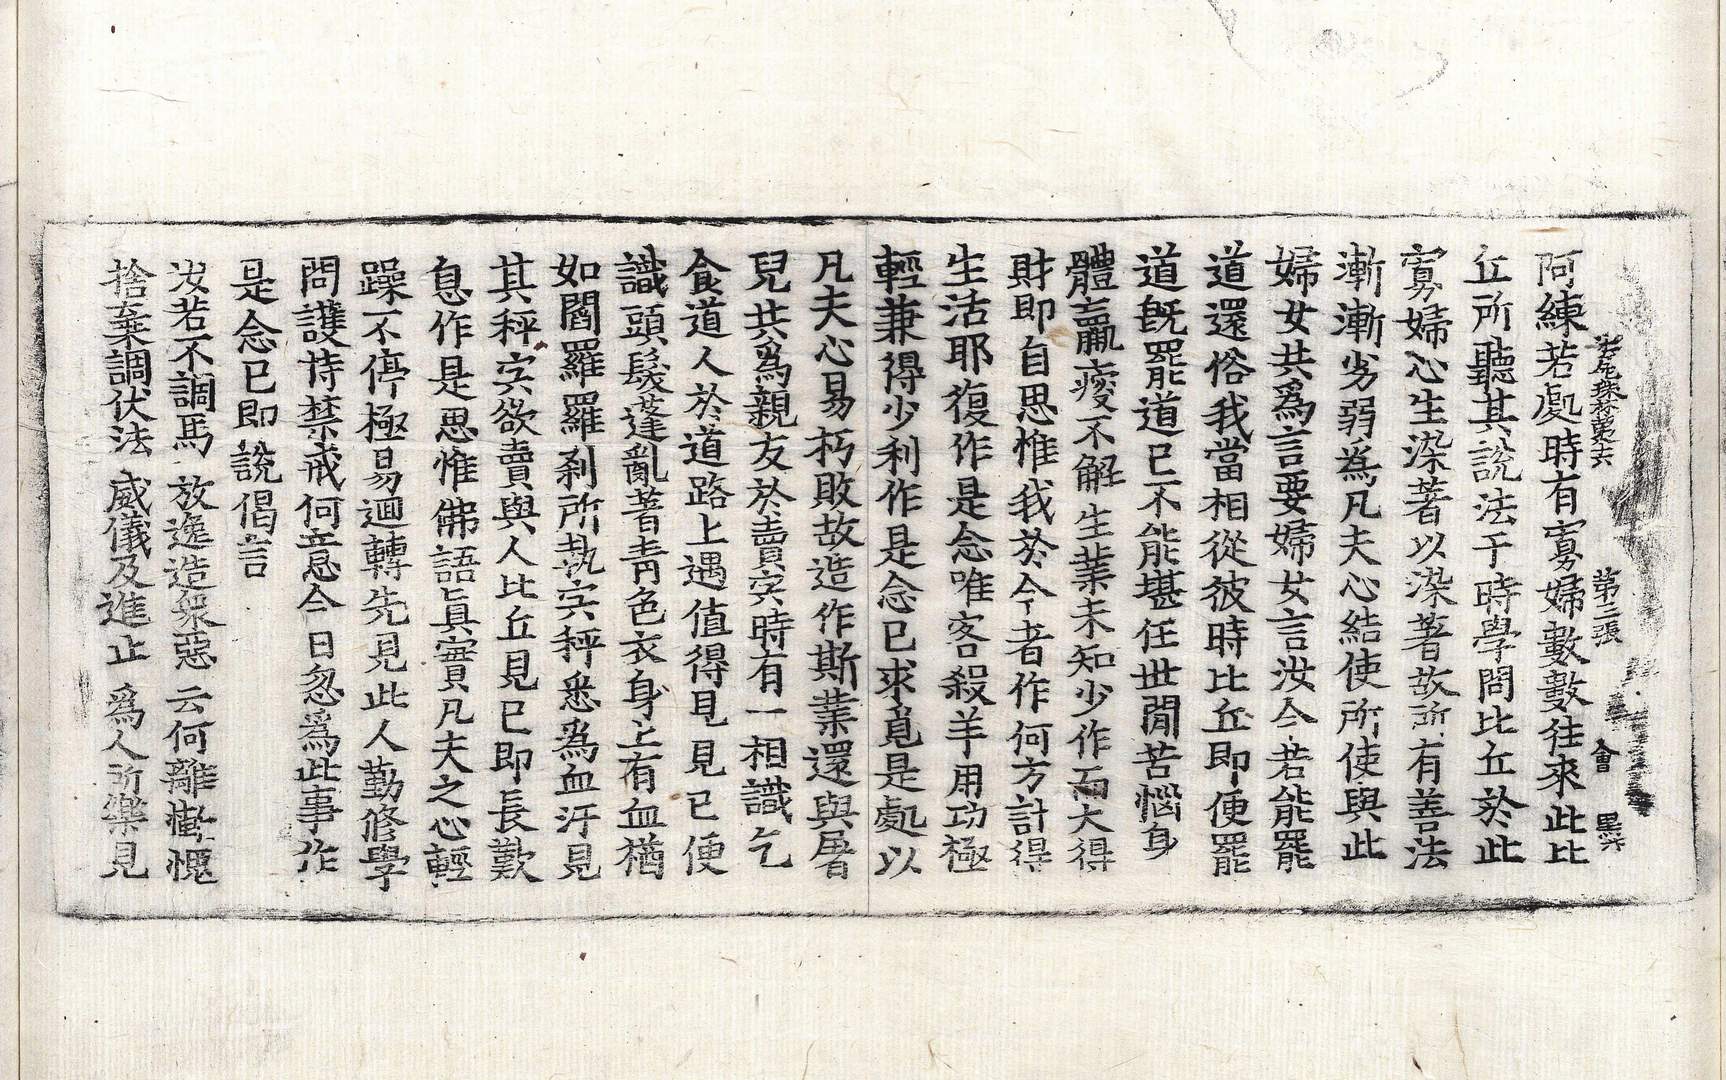 第三張 會
阿練若處時有寡婦數數往來此比
丘所聽其說法于時學問比丘於此
寡婦心生染著以染著故所有善法
漸漸劣弱爲凡夫心結使所使與此
婦女共爲言要婦女言汝今若能罷
道還俗我當相從彼時比丘即便罷
道旣罷道已不能堪任世閒苦惱身
體羸瘦不解生業未知少作而大得
財即自思惟我於今者作何方計得
生活耶復作是念唯客殺羊用功極
輕兼得少利作是念已求覓是處以
凡夫心易朽敗故造作斯業還與屠
兒共爲親友於賣宍時有一相識乞
食道人於道路上遇値得見見已便
識頭髮蓬亂著青色衣身上有血猶
如閻羅羅剎所執宍秤悉爲血汙見
其秤宍欲賣與人比丘見已即長歎
息作是思惟佛語眞實凡夫之心輕
躁不停極易迴轉先見此人勤修學
問護持禁戒何意今日忽爲此事作
是念已即說偈言
汝若不調馬 放逸造衆惡 云何離慙愧
捨棄調伏法 威儀及進止 爲人所樂見